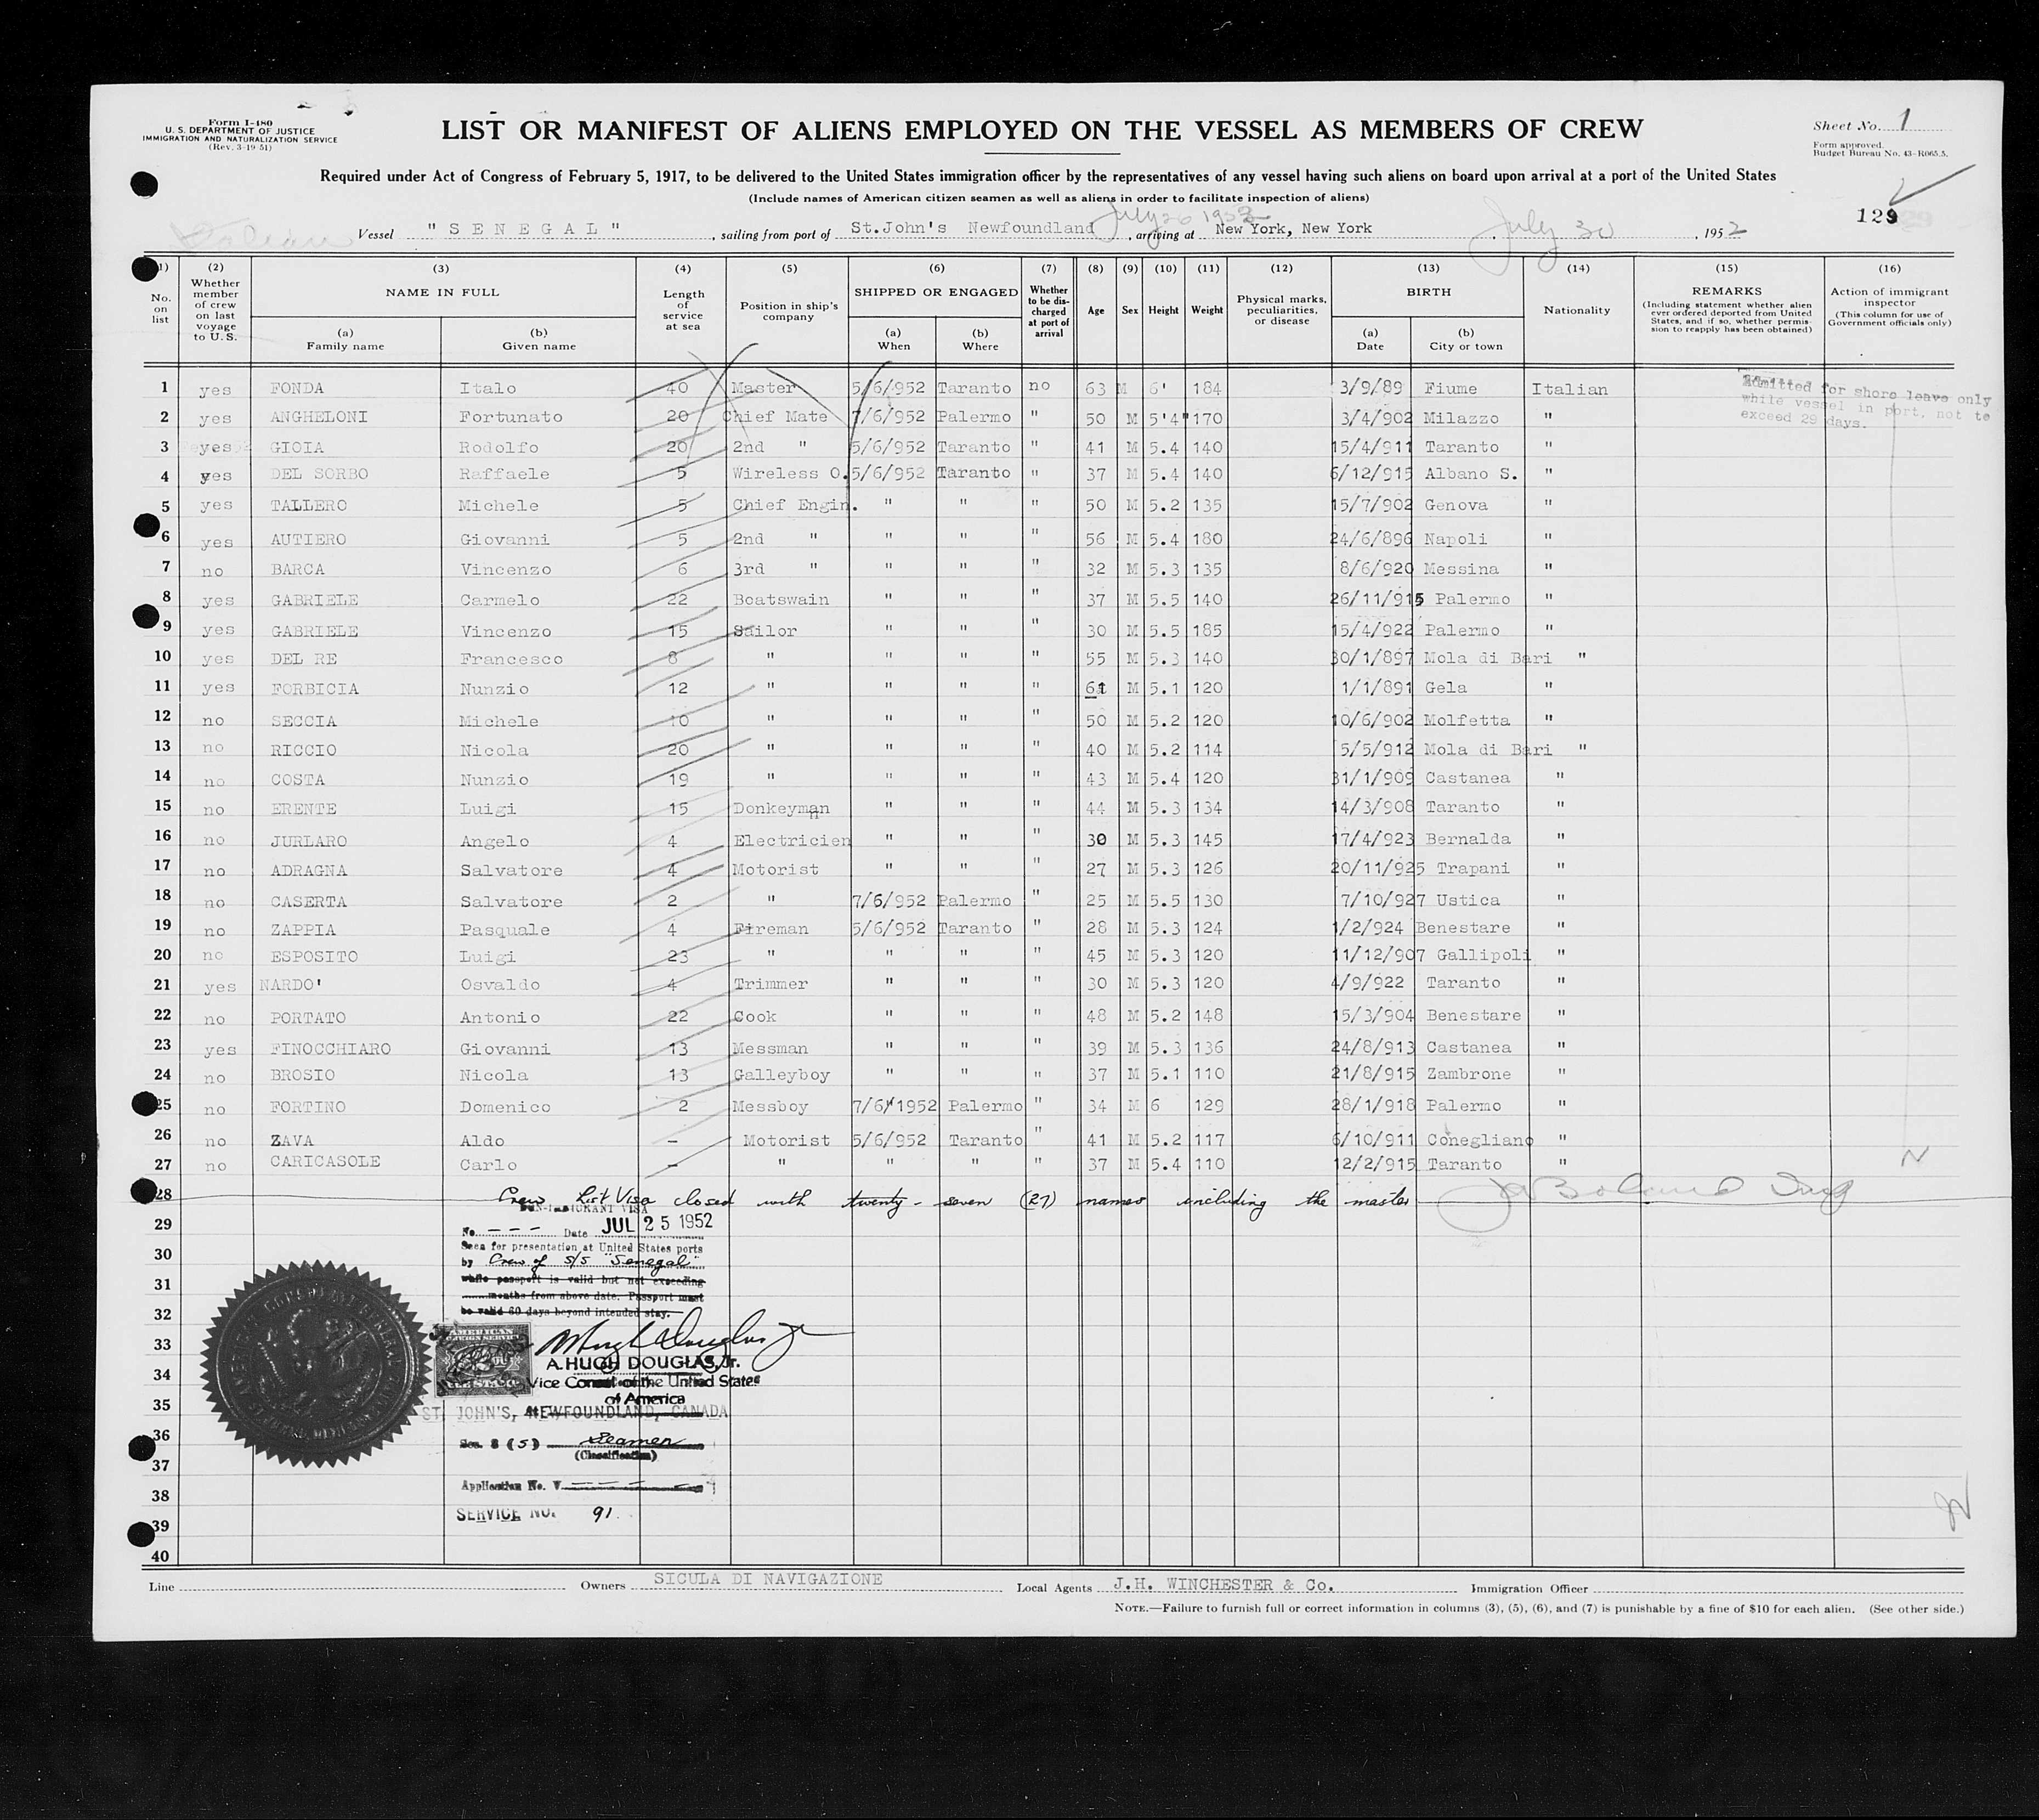 Form I-480
U. S. DEPARTMENT OF JUSTICE
IMMIGRATION AND NATURALIZATION SERVICE
(Rev. 3-19-51)
LIST OR MANIFEST OF ALIENS EMPLOYED ON THE VESSEL AS MEMBERS OF CREW
Sheet No. 1
Form approved.
Budget Bureau No. 43-R065.5.
Required under Act of Congress of February 5, 1917, to be delivered to the United States immigration officer by the representatives of any vessel having such aliens on board upon arrival at a port of the United States
(Include names of American citizen seamen as well as aliens in order to facilitate inspection of aliens)
129
Italian Vessel "SENEGAL", sailing from port of St.John's Newfoundland July 26 1952, arriving at New York, New York, July 30, 1952
(1) No. on list
(2) Whether member of crew on last voyage to U. S.
(3) NAME IN FULL (a) Family name (b) Given name
(4) Length of service at sea
(5) Position in ship's company
(6) SHIPPED OR ENGAGED (a) When (b) Where
(7) Whether to be discharged at port of arrival
(8) Age
(9) Sex
(10) Height
(11) Weight
(12) Physical marks, peculiarities, or disease
(13) BIRTH (a) Date (b) City or town
(14) Nationality
(15) REMARKS (Including statement whether alien ever ordered deported from United States, and if so, whether permission to reapply has been obtained)
(16) Action of immigrant inspector (This column for use of Government officials only)
1 yes FONDA Italo 40 Master 5/6/952 Taranto no 63 M 6' 184 3/9/89 Fiume Italian
Admitted for shore leave only
while vessel in port, not to
exceed 29 days.
2 yes ANGHELONI Fortunato 20 Chief Mate 7/6/952 Palermo " 50 M 5'4" 170 3/4/902 Milazzo "
3 yes GIOIA Rodolfo 20 2nd " 5/6/952 Taranto " 41 M 5.4 140 15/4/911 Taranto "
4 yes DEL SORBO Raffaele 5 Wireless O. 5/6/952 Taranto " 37 M 5.4 140 6/12/915 Albano S. "
5 yes TALLERO Michele 5 Chief Engin. " " " 50 M 5.2 135 15/7/902 Genova "
6 yes AUTIERO Giovanni 5 2nd " " " " 56 M 5.4 180 24/6/896 Napoli "
7 no BARCA Vincenzo 6 3rd " " " " 32 M 5.3 135 8/6/920 Messina "
8 yes GABRIELE Carmelo 22 Boatswain " " " 37 M 5.5 140 26/11/915 Palermo "
9 yes GABRIELE Vincenzo 15 Sailor " " " 30 M 5.5 185 15/4/922 Palermo "
10 yes DEL RE Francesco 8 " " " " 55 M 5.3 140 30/1/897 Mola di Bari "
11 yes FORBICIA Nunzio 12 " " " " 61 M 5.1 120 1/1/891 Gela "
12 no SECCIA Michele 10 " " " " 50 M 5.2 120 10/6/902 Molfetta "
13 no RICCIO Nicola 20 " " " " 40 M 5.2 114 5/5/912 Mola di Bari "
14 no COSTA Nunzio 19 " " " " 43 M 5.4 120 31/1/909 Castanea "
15 no ERENTE Luigi 15 Donkeyman " " " 44 M 5.3 134 14/3/908 Taranto "
16 no JURLARO Angelo 4 Electricien " " " 30 M 5.3 145 17/4/923 Bernalda "
17 no ADRAGNA Salvatore 4 Motorist " " " 27 M 5.3 126 20/11/925 Trapani "
18 no CASERTA Salvatore 2 " 7/6/952 Palermo " 25 M 5.5 130 7/10/927 Ustica "
19 no ZAPPIA Pasquale 4 Fireman 5/6/952 Taranto " 28 M 5.3 124 1/2/924 Benestare "
20 no ESPOSITO Luigi 23 " " " " 45 M 5.3 120 11/12/907 Gallipoli "
21 yes NARDO' Osvaldo 4 Trimmer " " " 30 M 5.3 120 4/9/922 Taranto "
22 no PORTATO Antonio 22 Cook " " " 48 M 5.2 148 15/3/904 Benestare "
23 yes FINOCCHIARO Giovanni 13 Messman " " " 39 M 5.3 136 24/8/913 Castanea "
24 no BROSIO Nicola 13 Galleyboy " " " 37 M 5.1 110 21/8/915 Zambrone "
25 no FORTINO Domenico 2 Messboy 7/6/1952 Palermo " 34 M 6 129 28/1/918 Palermo "
26 no ZAVA Aldo - Motorist 5/6/952 Taranto " 41 M 5.2 117 6/10/911 Conegliano "
27 no CARICASOLE Carlo - " " " " 37 M 5.4 110 12/2/915 Taranto "
28 Crew List Visa closed with twenty-seven (27) names including the master
NON-IMMIGRANT VISA
29 No. --- Date JUL 25 1952
Seen for presentation at United States ports
30 by Crew of S/S "Senegal"
31 while passport is valid but not exceeding
months from above date. Passport must
32 be valid 60 days beyond intended stay.
AMERICAN
FOREIGN SERVICE
33
A. HUGH DOUGLAS, Jr.
34 Vice Consul of the United States
of America
35 ST. JOHN'S, NEWFOUNDLAND, CANADA
36 Sec. 3 (5) Seamen
(Classification)
37
Application No. V
38
SERVICE NO. 91
39
40
Line Owners SICULA DI NAVIGAZIONE Local Agents J.H. WINCHESTER & Co. Immigration Officer
NOTE.—Failure to furnish full or correct information in columns (3), (5), (6), and (7) is punishable by a fine of $10 for each alien. (See other side.)